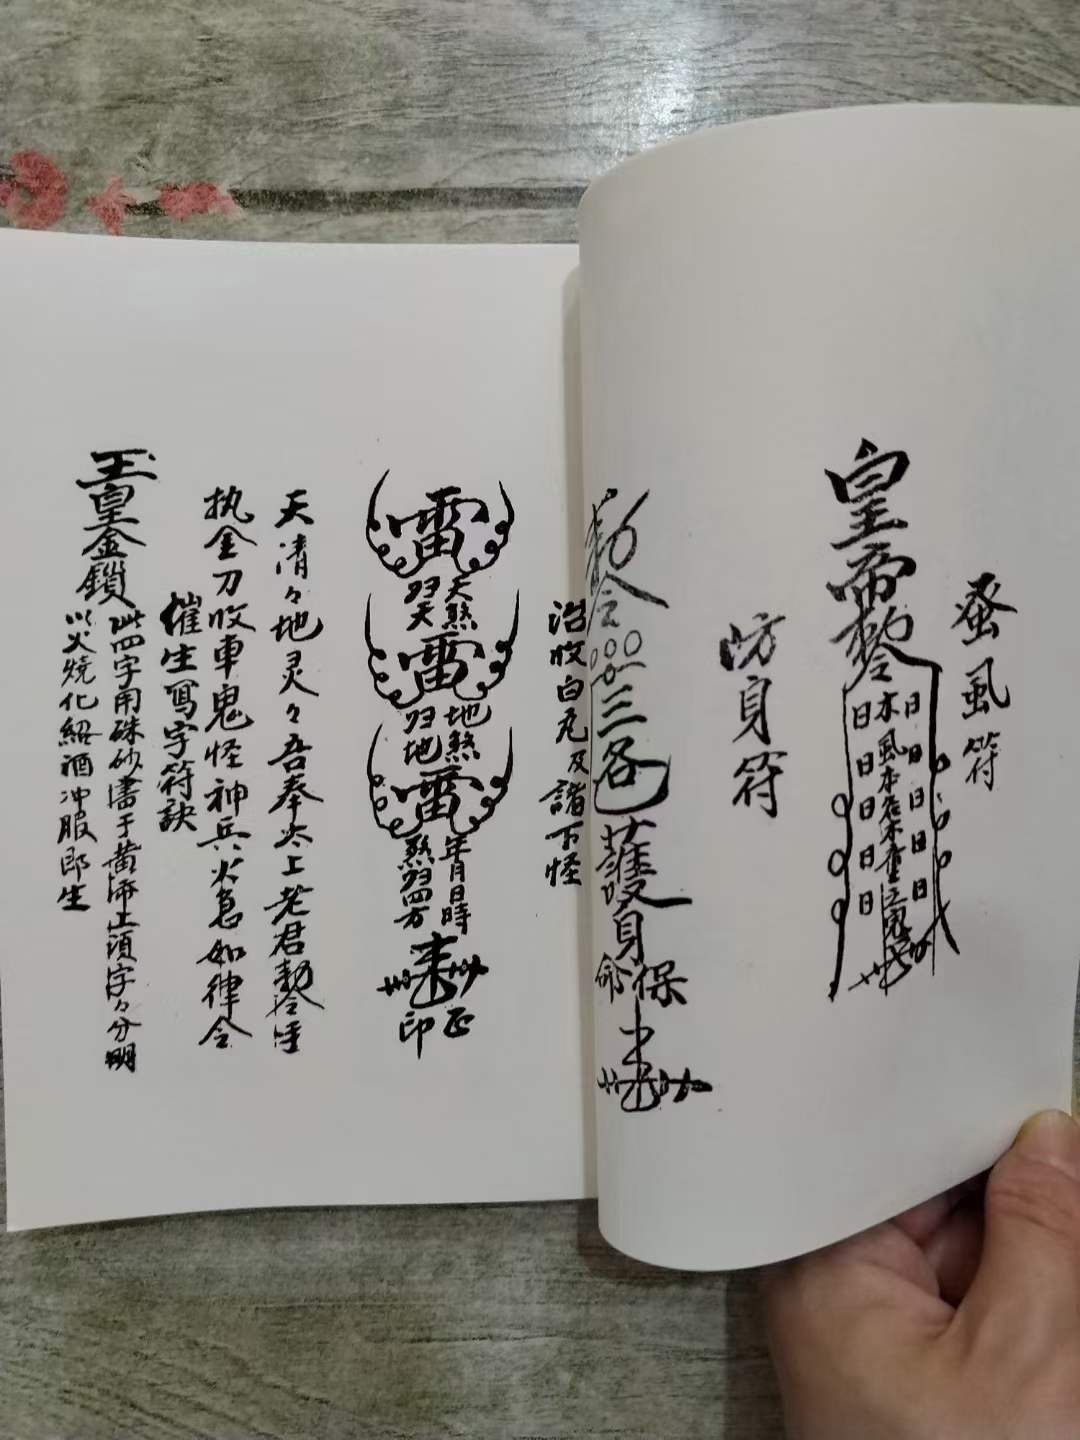 蚤風符
皇帝敕令
日日日日日
木風本老不童立鬼
日日日日日
防身符
敕令
三台
護身
保命
治收白丸及諸下怪
雷
天煞
归天
雷
地煞
归地
雷
年月日時
煞归四方
正印
天清々地灵々吾奉太上老君勅令
执金刀收車鬼怪神兵火急如律令
催生寫字符訣
玉皇金鎖
此四字用硃砂書于黄紙上須字々分明
以火燒化紹酒冲服即生